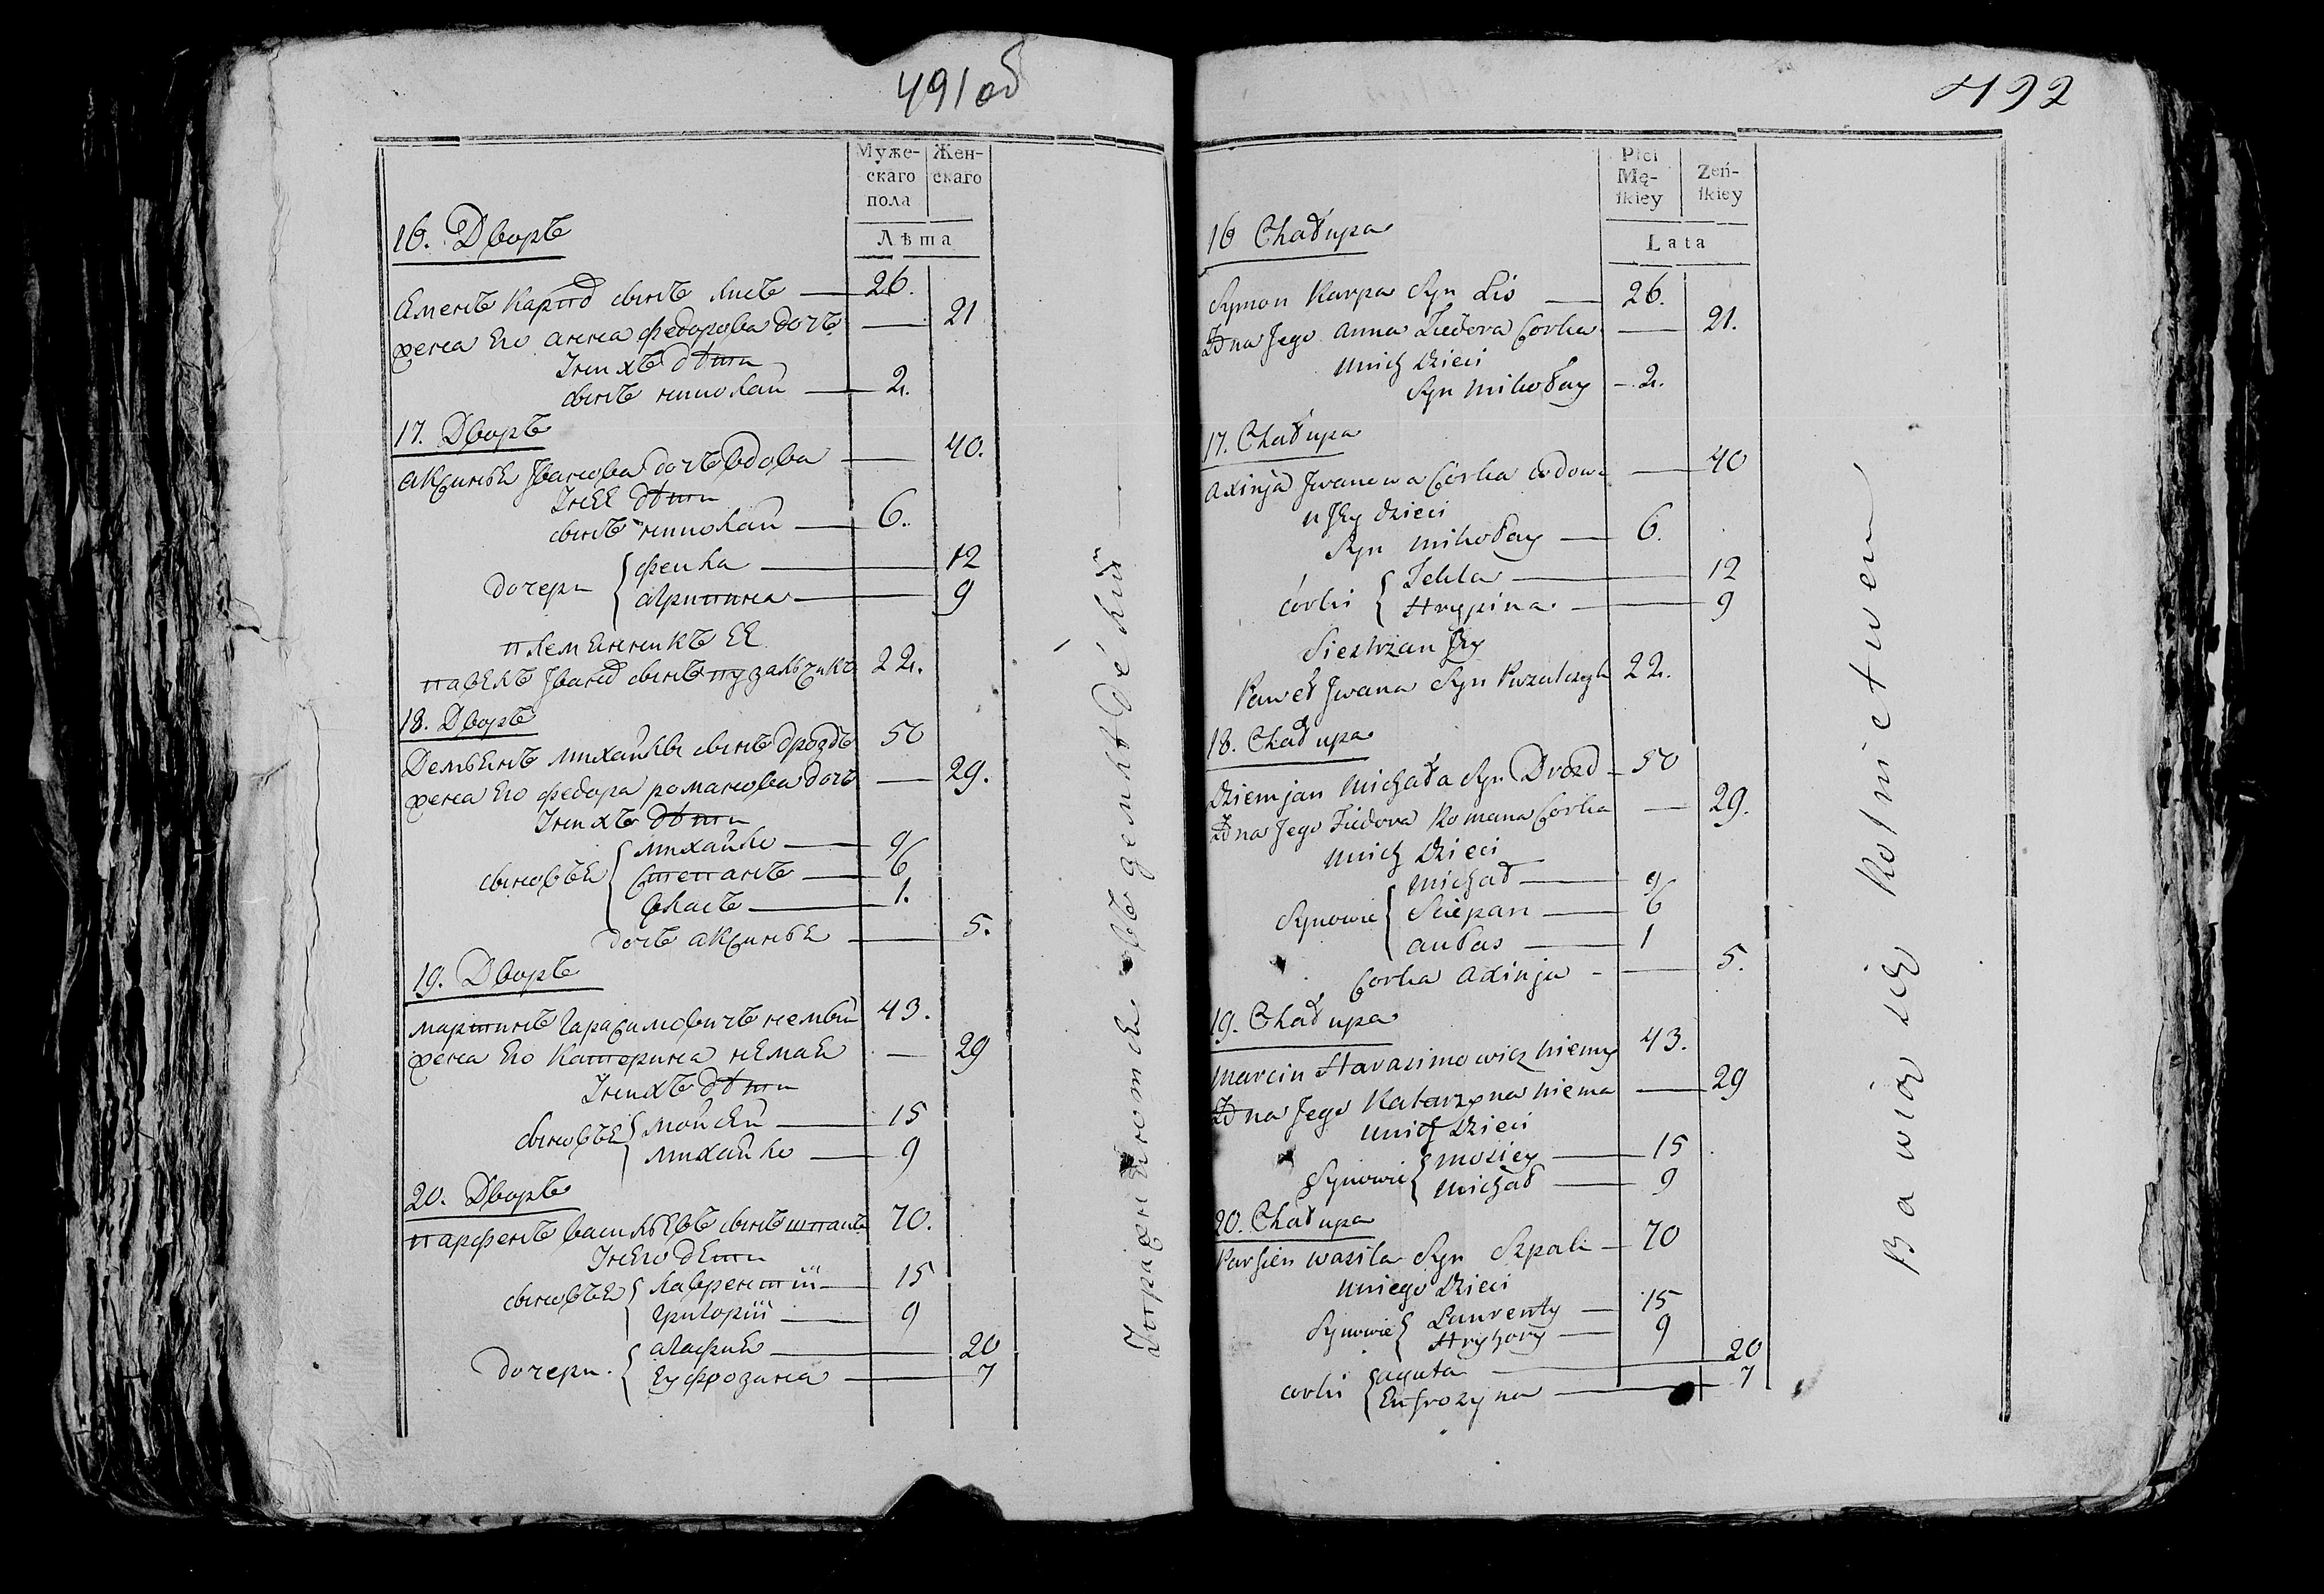 491 об
Муже-
скаго
пола
Жен-
скаго
Лѣта
16. Дворъ
Семенъ Карпов сынъ лисъ — 26.
жена Его анна федорова дочь — 21
У нихъ дѣти
сынъ николай — 2.
17. Дворъ
аксинья Иванова дочь вдова — 40.
У нЕЕ дѣти
сынъ николай — 6.
дочери { фекла — 12
агрипина — 9
племЕнникъ ЕЕ
павЕлъ Иванов сынъ пузальчикъ 22.
18. Дворъ
ДемьЕнъ михайлов сынъ дроздъ 50
жена Его федора романова дочь — 29.
У нихъ дѣти
сыновьЕ { михайло — 9
Степанъ — 6
Власъ — 1.
дочь аксиньЕ — 5.
19. Дворъ
мартинъ Гарасимовичъ немый 43.
жена Его Катерина нЕмаЕ — 29
У нихъ дѣти
сыновьЕ { мойсЕй — 15
михайло — 9
20. Дворъ
парфенъ васильЕвъ сынъ шпакъ 70.
У нЕго дЕти
сыновьЕ { лаврентiй — 15
григорiй — 9
дочери. { агафиЕ — 20
Еуфрозина — 7
492
Płci
Mę-
ſkiey
Żeń-
ſkiey
Lata
16 Chałupa
Symon Karpa Syn Lis — 26.
Żona Jego Anna Fiedora Corka — 21.
unich Dzieci
Syn Mikołay — 2.
17. Chałupa
Axinja Jwanowa Córka wdowa — 40
u Jey dzieci
Syn Mikołay — 6.
Corki { Tekla — 12
Hrypina — 9
Siestrzan Jey
Paweł Jwana Syn Puzalczyk 22.
18. Chałupa
Dziemjan Michała Syn Drozd — 50
Żona Jego Fiedora Romana Corka — 29.
unich Dzieci
Synowie { Michał — 9
Sciepan — 6
aułas — 1
Corka Axinja — 5.
19. Chałupa
Marcin Harasimowicz niemy 43.
Żona Jego Katarzyna niema — 29
unich Dzieci
Synowie { Mosiey — 15
Michał — 9
20. Chałupa
Parfien Wasila Syn Szpak — 70
uniego Dzieci
Synowie { Laurenty — 15
Hryhory — 9
corki { agata — 20
Eufrozyna — 7
Bawią się Rolnictwem